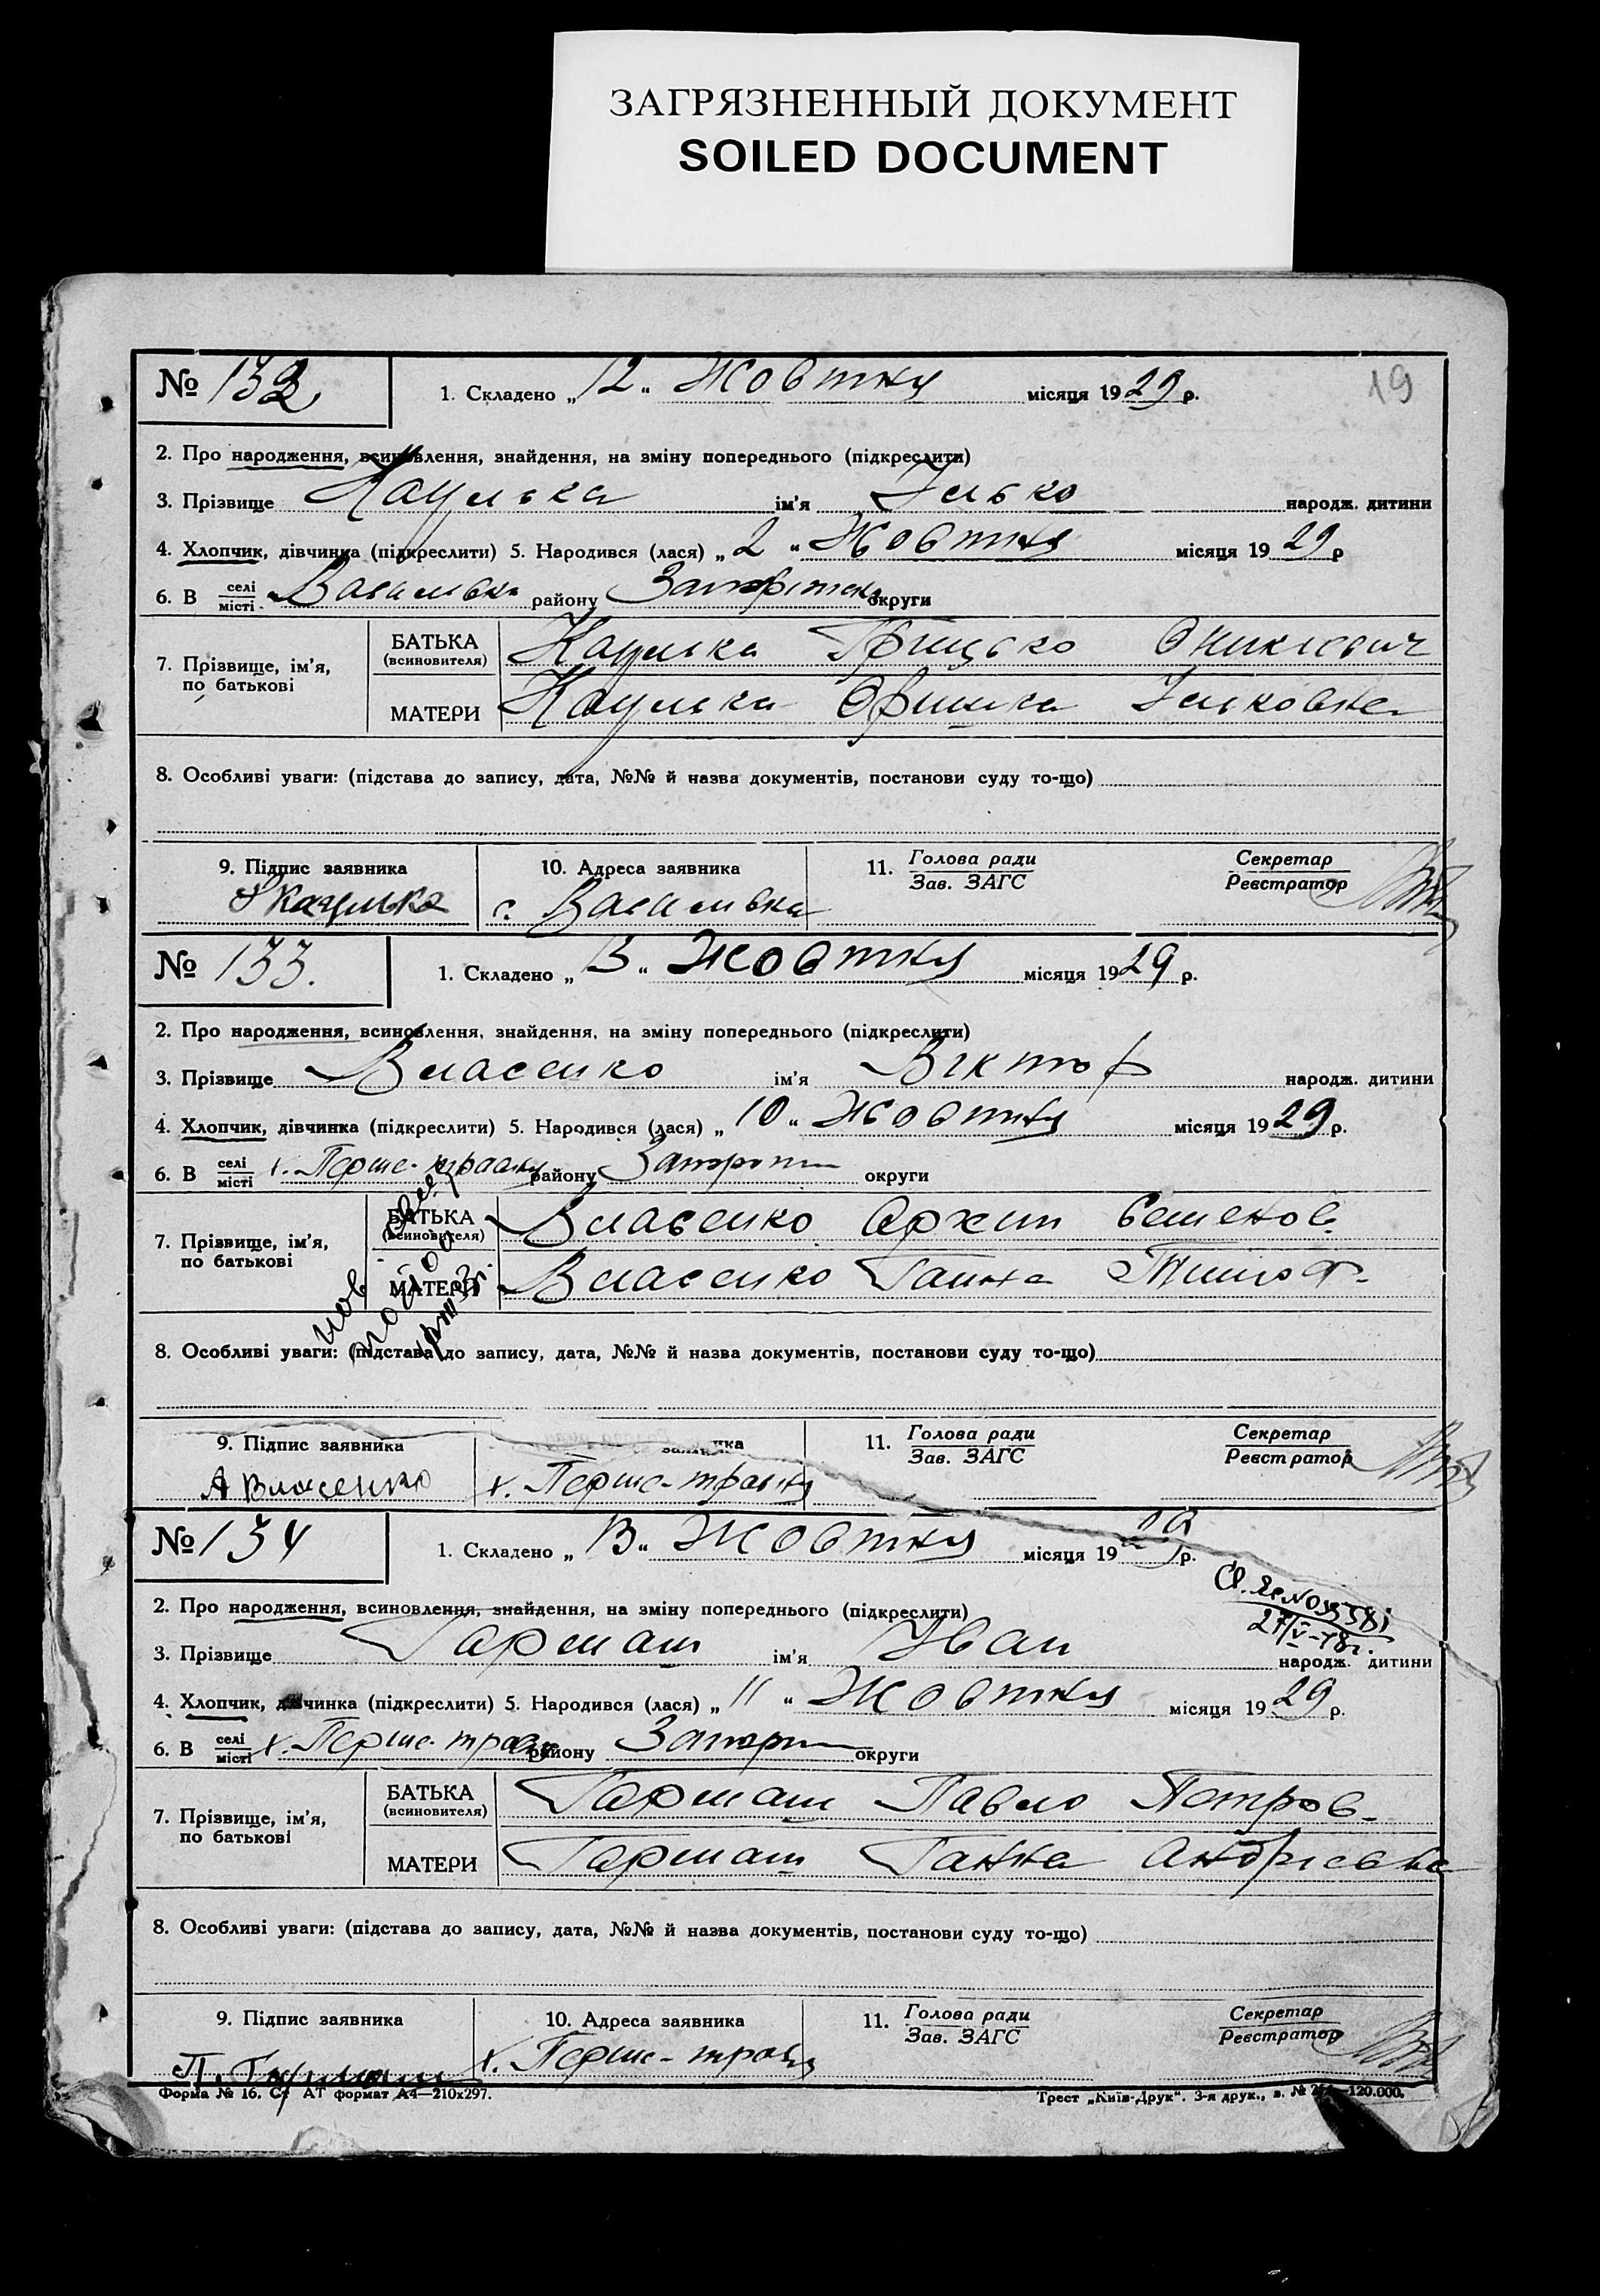 ЗАГРЯЗНЕННЫЙ ДОКУМЕНТ
SOILED DOCUMENT
19
№ 132 1. Складено „12“ Жовтня місяця 1929 р.
2. Про народження, всиновлення, знайдення, на зміну попереднього (підкреслити)
3. Прізвище Кацулька ім'я Ілько народж. дитини
4. Хлопчик, дівчинка (підкреслити) 5. Народився (лася) „2“ Жовтня місяця 1929 р
6. В селі місті Василівка району округи
7. Прізвище, ім'я, по батькові
БАТЬКА (всиновителя) Кацулька Грицько
МАТЕРИ Кацулька Оришка Ільковна
8. Особливі уваги: (підстава до запису, дата, №№ й назва документів, постанови суду то-що)
9. Підпис заявника 10. Адреса заявника 11. Голова ради Зав. ЗАГС Секретар Реєстратор
Кацулька с. Василівка
№ 133. 1. Складено „13“ Жовтня місяця 1929 р.
2. Про народження, всиновлення, знайдення, на зміну попереднього (підкреслити)
3. Прізвище Власенко ім'я Віктор народж. дитини
4. Хлопчик, дівчинка (підкреслити) 5. Народився (лася) „10“ Жовтня місяця 1929 р.
6. В селі місті х. Перше-травня району округи
7. Прізвище, ім'я, по батькові
БАТЬКА (всиновителя) Власенко Архип Семенов.
МАТЕРИ Власенко Ганна Тимоф.
8. Особливі уваги: (підстава до запису, дата, №№ й назва документів, постанови суду то-що)
9. Підпис заявника 11. Голова ради Зав. ЗАГС Секретар Реєстратор
А Власенко х. Перше-травня
№ 134 1. Складено „13“ Жовтня місяця 1929 р.
2. Про народження, всиновлення, знайдення, на зміну попереднього (підкреслити)
3. Прізвище Гармаш ім'я Іван народж. дитини
4. Хлопчик, дівчинка (підкреслити) 5. Народився (лася) „11“ Жовтня місяця 1929 р.
6. В селі місті х. Перше-травня району округи
7. Прізвище, ім'я, по батькові
БАТЬКА (всиновителя) Гармаш Павло Петров.
МАТЕРИ Гармаш Ганна Андріевна
8. Особливі уваги: (підстава до запису, дата, №№ й назва документів, постанови суду то-що)
9. Підпис заявника 10. Адреса заявника 11. Голова ради Зав. ЗАГС Секретар Реєстратор
П. Гармаш х. Перше-травня
Форма № 16. Ст АТ формат А4—210х297. Трест „Київ-Друк“. 3-я друк., з. № 120.000.